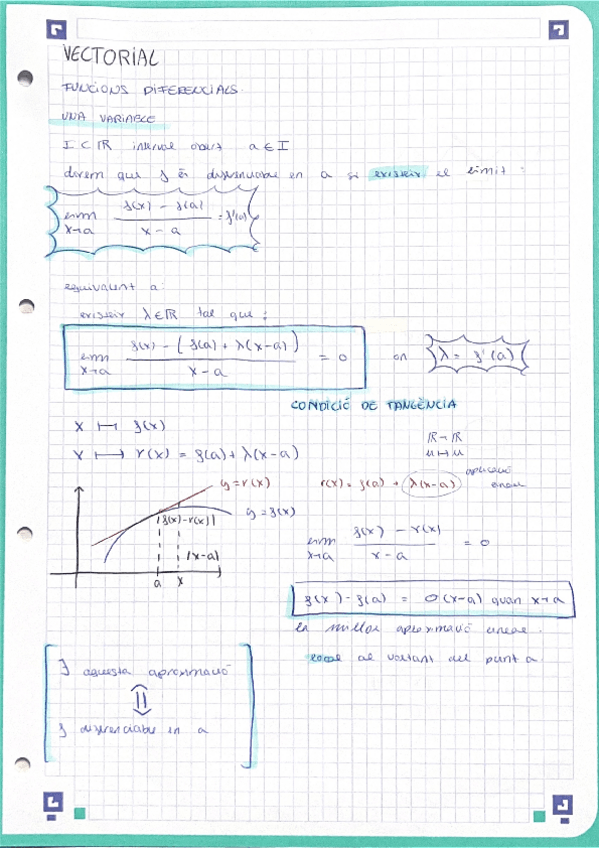 VECTORIAL
FUNCIONS DIFERENCIALS.
UNA VARIABLE
I ⊂ ℝ interval obert a ∈ I
direm que f és diferenciable en a si existeix el límit :
lim x→a (f(x) - f(a)) / (x - a) = f'(a)
equivalent a:
existeix λ ∈ ℝ tal que :
lim x→a (f(x) - (f(a) + λ(x-a))) / (x - a) = 0 on λ = f'(a)
CONDICIÓ DE TANGÈNCIA
x ⟼ f(x)
x ⟼ r(x) = f(a) + λ(x-a)
ℝ → ℝ
u ↦ λu
y = r(x)
r(x) = f(a) + λ(x-a) aplicació lineal
y = f(x)
|f(x) - r(x)|
|x-a|
a x
lim x→a (f(x) - r(x)) / (x - a) = 0
f(x) - f(a) = o(x-a) quan x→a
la millor aproximació lineal.
local al voltant del punt a.
∃ aquesta aproximació
⇕
f diferenciable en a